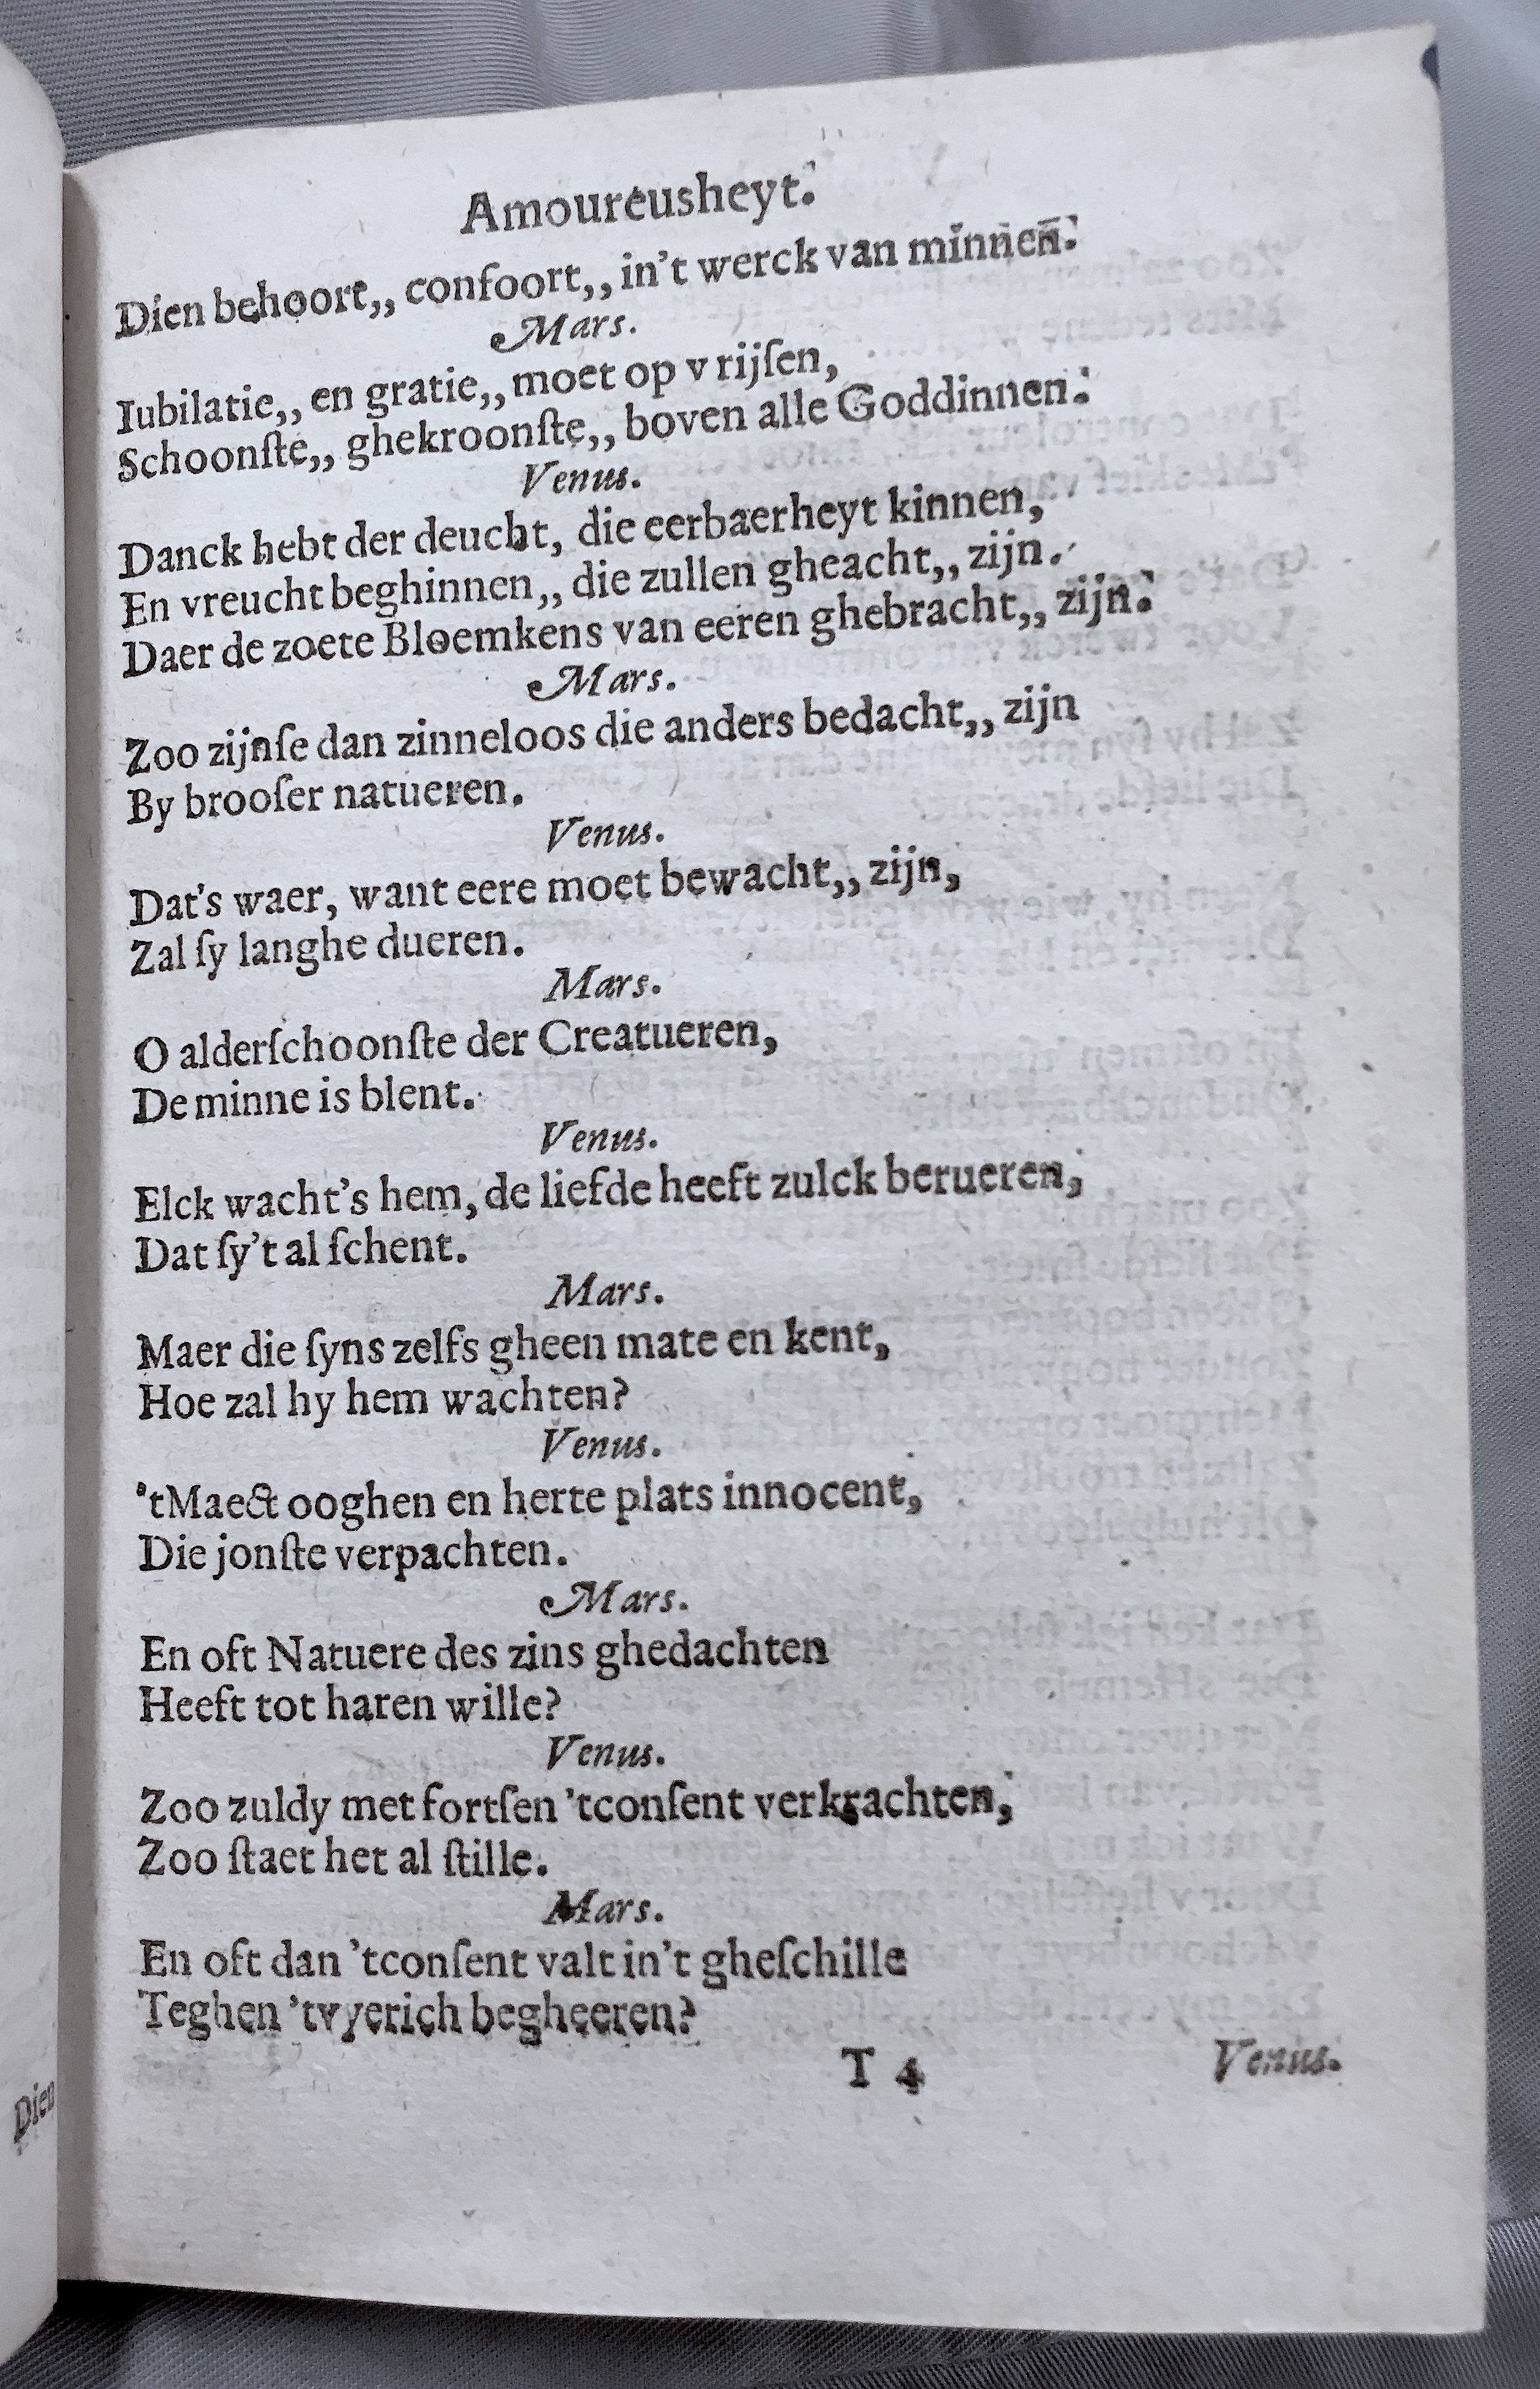 Amoureusheyt.
Dien behoort,, confoort,, in't werck van minnen.
Mars.
Iubilatie,, en gratie,, moet op v rijſen,
Schoonſte,, ghekroonſte,, boven alle Goddinnen.
Venus.
Danck hebt der deucht, die eerbaerheyt kinnen,
En vreucht beghinnen,, die zullen gheacht,, zijn.
Daer de zoete Bloemkens van eeren ghebracht,, zijn.
Mars.
Zoo zijnſe dan zinneloos die anders bedacht,, zijn
By brooſer natueren.
Venus.
Dat's waer, want eere moet bewacht,, zijn,
Zal ſy langhe dueren.
Mars.
O alderſchoonſte der Creatueren,
De minne is blent.
Venus.
Elck wacht's hem, de liefde heeft zulck berueren,
Dat ſy't al ſchent.
Mars.
Maer die ſyns zelfs gheen mate en kent,
Hoe zal hy hem wachten?
Venus.
'tMaect ooghen en herte plats innocent,
Die jonſte verpachten.
Mars.
En oft Natuere des zins ghedachten
Heeft tot haren wille?
Venus.
Zoo zuldy met fortſen 'tconſent verkrachten,
Zoo ſtaet het al ſtille.
Mars.
En oft dan 'tconſent valt in't gheſchille
Teghen 'tvyerich begheeren?
T 4 Venus.
Dien